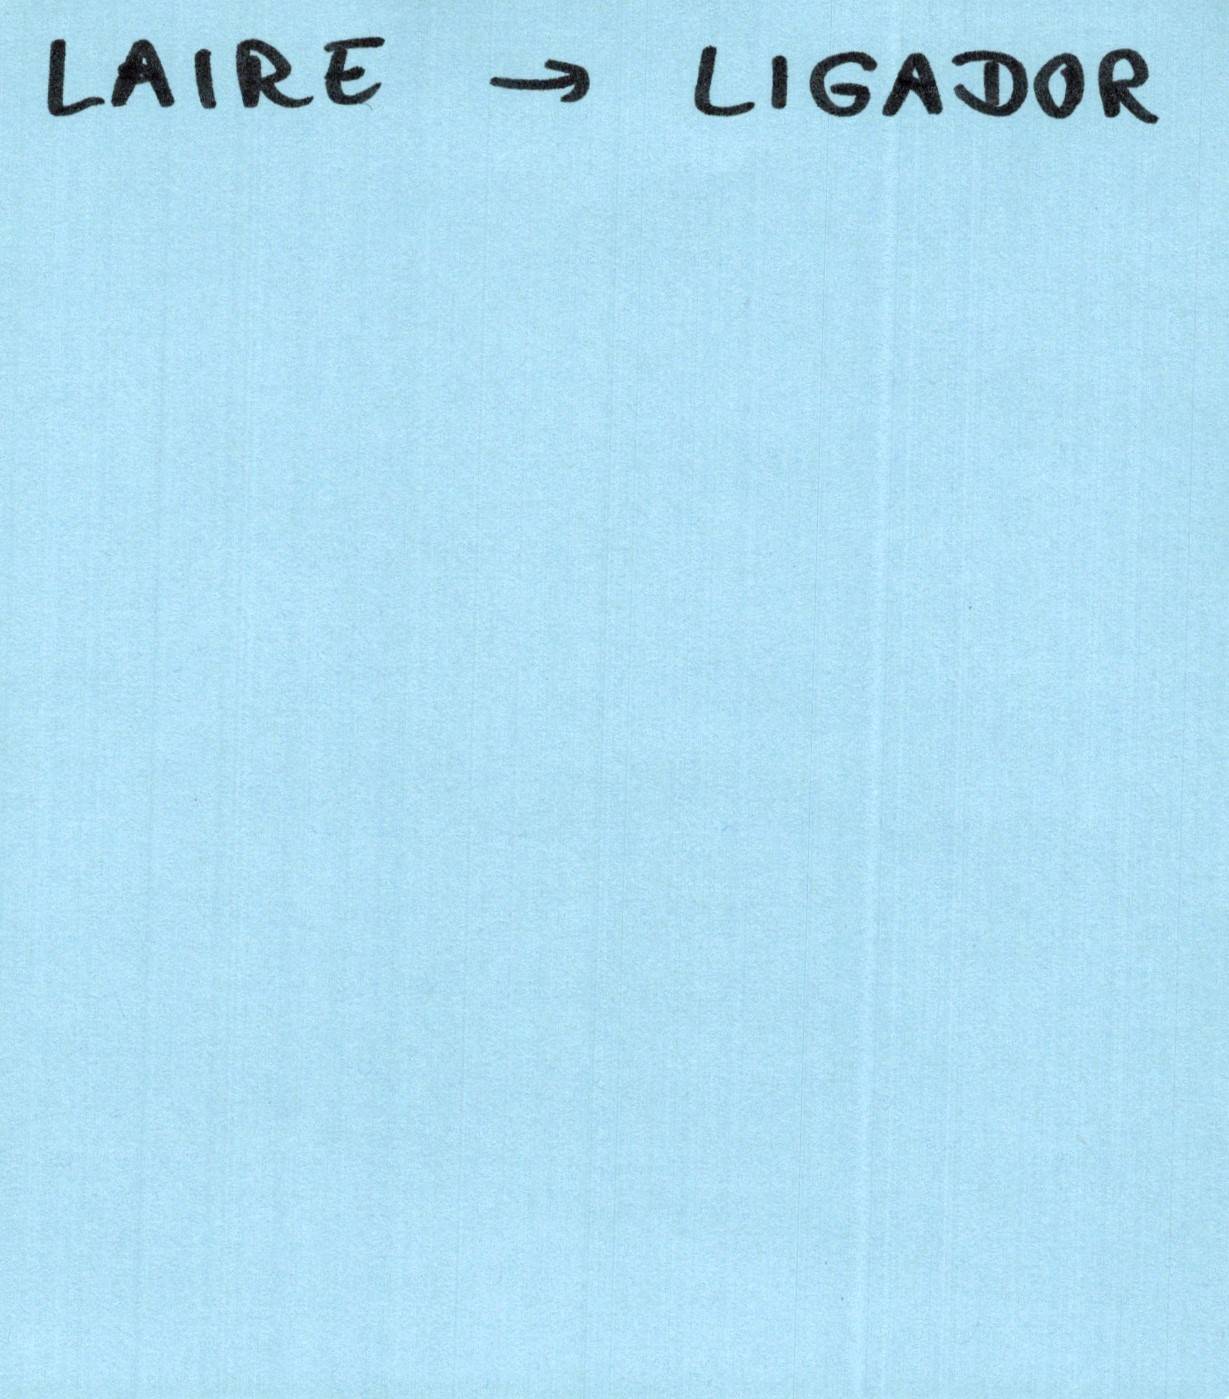 LAIRE → LIGADOR